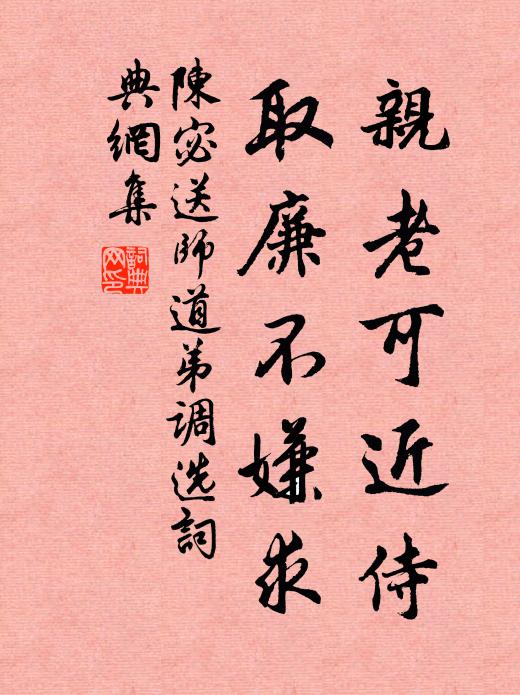 親老可近侍
取廉不嫌求
陳宓送師道弟調选詞
典網集
詞典
网印